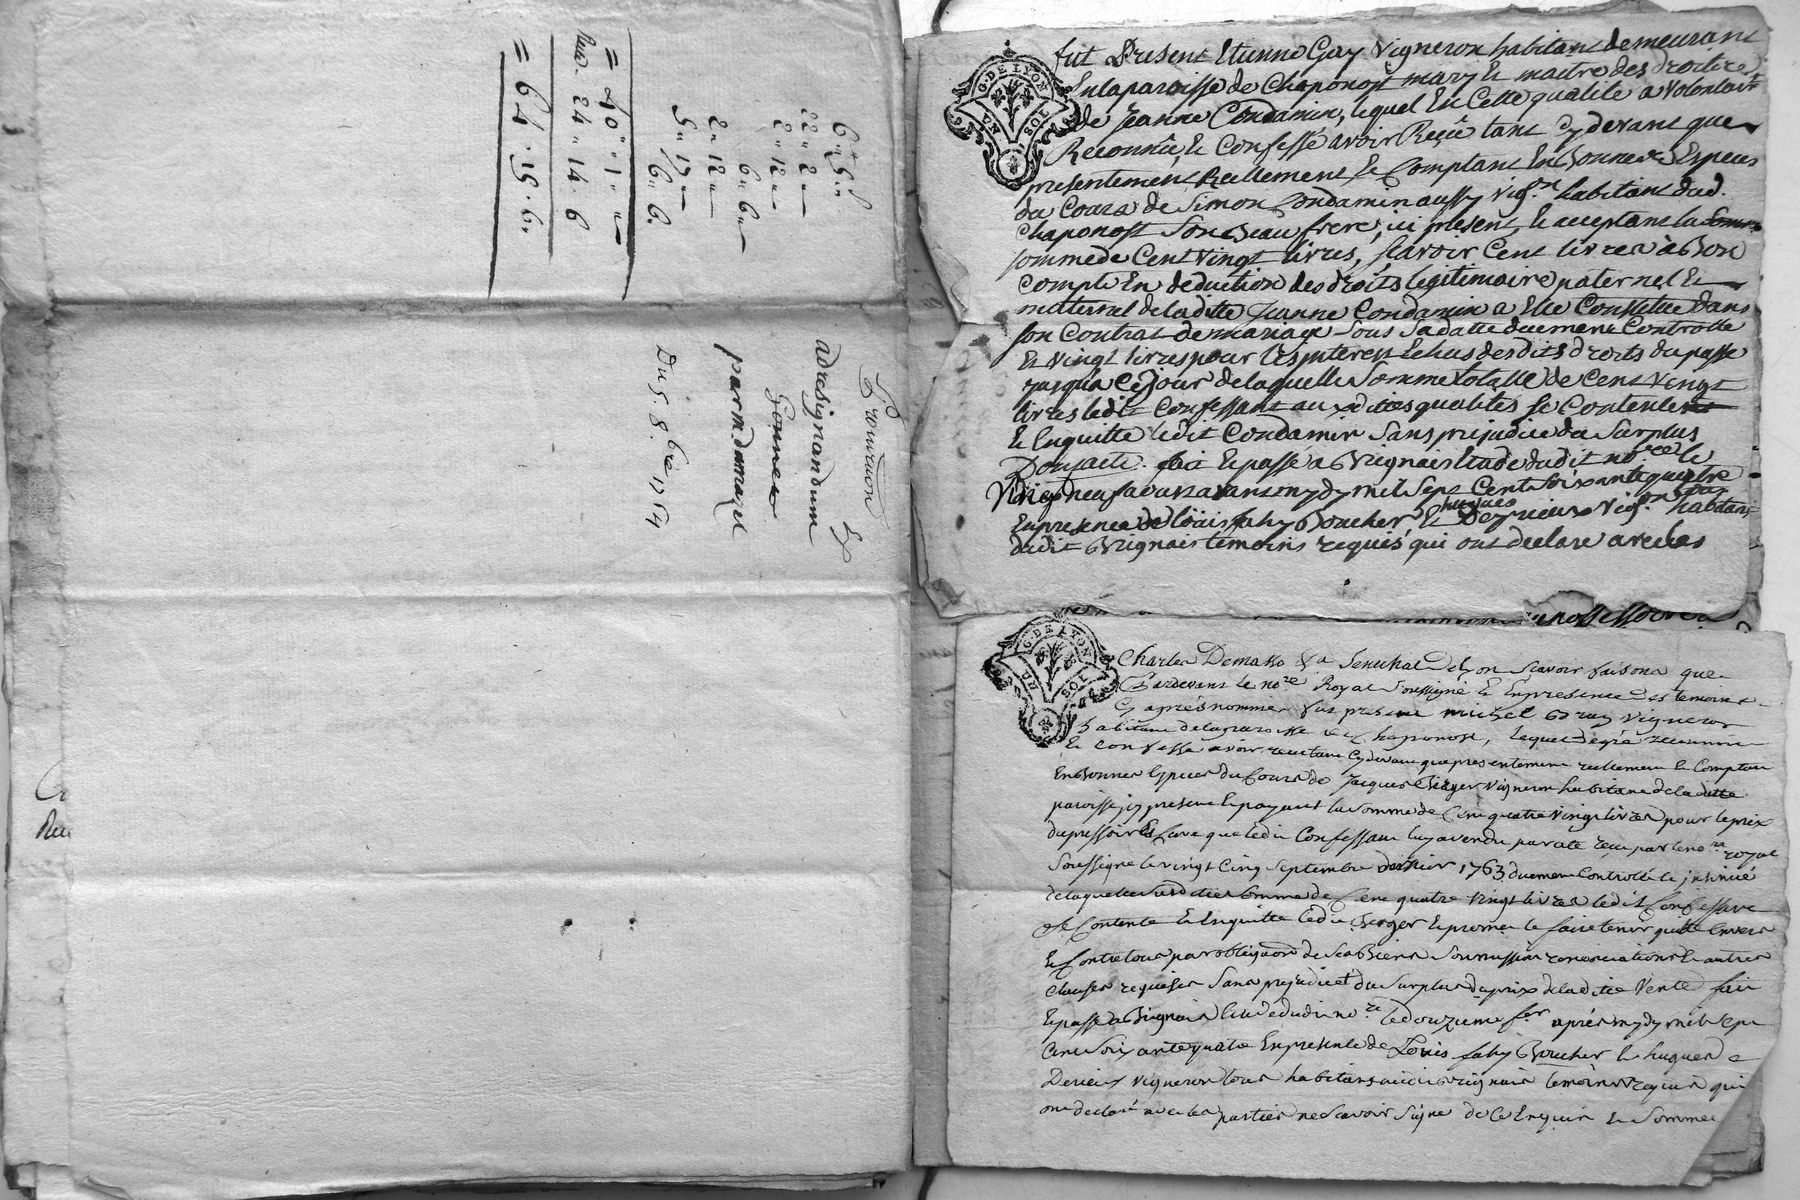 6 " 5 "
22 " 2 "
2 " 12 "
6 " 6 "
2 " 12 "
5 " 17 "
6 " 6.
= 40 " 1 "
24 " 14 " 6
= 64 . 15 . 6.
adresignandum
par md damazel
Du 5. 8.bre 1764
G. DE LYON
UN SOL
fut Present Etienne Gay Vigneron habitant demeurant
En la paroisse de Chaponost mary et maitre des droits
de Jeanne Condamin, lequel En Cette qualité a volontair
Reconnû, et Confessé avoir Reçûe tant cydevant que
presentement Reellement et Comptant En Bonnes Especes
du Cours de Simon Condamin aussy vig.on habitant dud.
Chaponost Son Beau frere, ici present, et acceptant la
somme de Cent vingt livres, scavoir Cent livres à Bon
Compte En deduction des droits legitimaire paternel et
maternel de laditte Jeanne Condamin a Elle Constitué dans
son Contrat de mariage sous sa datte duement Controllé
Et vingt livres pour les interest Echus desdits droits du passé
jusqu'à ce jour de laquelle somme totalle de Cent vingt
livres ledit Confessant auxdittes qualités se Contente
Et Enquitte ledit Condamin Sans prejudice du Surplus
Dont acte. fait et passé a Brignais Etude dudit no.re le
Vingt neuf avant midy mil Sept Cent Soixante quatre
En presence de Loüis fahy Boucher et hugues Derieux vig.on habitant
dudit Brignais temoins requis qui ont declaré avec les
G. DE LYON
UN SOL
Charles Demasso &a Senechal de Lyon Scavoir faisons que
Pardevant le no.re Royal Soussigné et En presence des temoins
Cy après nommes fut present michel Bray vigneron
habitant de la paroisse de Chaponost, lequel de gré reconnu
et Confesse avoir receu tant Cydevant que presentement reellement et Comptant
En Bonnes Especes du Cours de Jacques Berger vigneron habitant de la ditte
paroisse jcy present et payant la somme de Cent quatre vingt livres pour le prix
du pressoir et Cuve que ledit Confessant luy a vendu par acte reçu par le no.re royal
Soussigné le vingt Cinq Septembre dernier 1763 duement Controllé et insinué
de laquelle susditte Somme de Cent quatre vingt livres ledit Confessant
Se Contente Et Enquitte ledit Berger Et promet le faire tenir quitte Envers
Et Contre tous par obligation de ses Biens Soumission renonciations et autres
Clauses requises Sans prejudice du Surplus du prix de la ditte Vente fait
Et passé a Brignais Etude dudit no.re le douzieme après mydy mil Sept
Cent Soixante quatre En presence de Louis fahy Boucher et hugues
Derieux vigneron tous habitans audit Brignais temoins requis qui
ont declaré avec les parties ne Scavoir Signé de Ce Enquis et Sommé